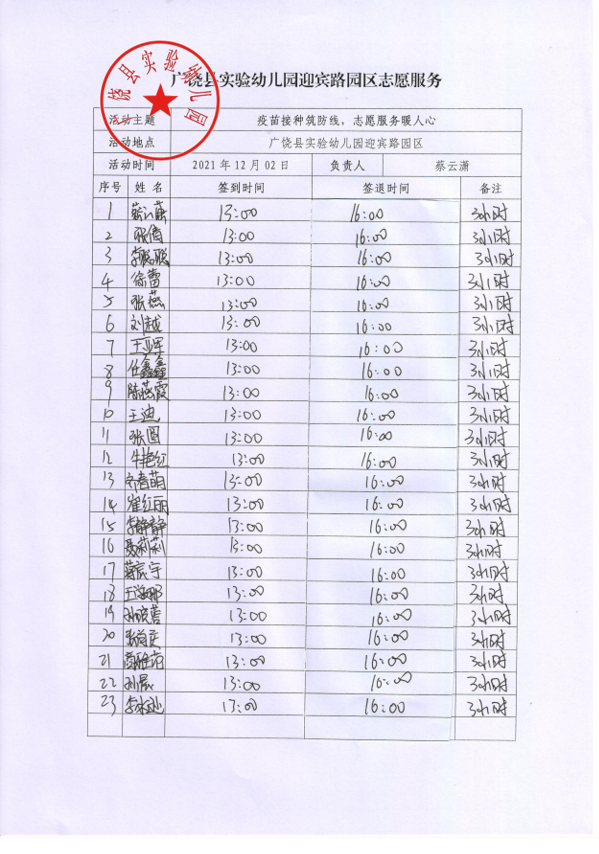 广饶县实验幼儿园迎宾路园区志愿服务
广饶县实验幼儿园
活动主题 疫苗接种筑防线，志愿服务暖人心
活动地点 广饶县实验幼儿园迎宾路园区
活动时间 2021年12月02日 负责人 蔡云潇
序号 姓名 签到时间 签退时间 备注
1 蔡云潇 13:00 16:00 3小时
2 张倩 13:00 16:00 3小时
3 13:00 16:00 3小时
4 徐蕾 13:00 16:00 3小时
5 张燕 13:00 16:00 3小时
6 刘越 13:00 16:00 3小时
7 王亚军 13:00 16:00 3小时
8 任鑫鑫 13:00 16:00 3小时
9 陈燕霞 13:00 16:00 3小时
10 王迪 13:00 16:00 3小时
11 张圆 13:00 16:00 3小时
12 牛艳红 13:00 16:00 3小时
13 齐春萌 13:00 16:00 3小时
14 崔红丽 13:00 16:00 3小时
15 李静静 13:00 16:00 3小时
16 聂莉莉 13:00 16:00 3小时
17 葛宸宇 13:00 16:00 3小时
18 王海那 13:00 16:00 3小时
19 13:00 16:00 3小时
20 13:00 16:00 3小时
21 13:00 16:00 3小时
22 孙晨 13:00 16:00 3小时
23 13:00 16:00 3小时